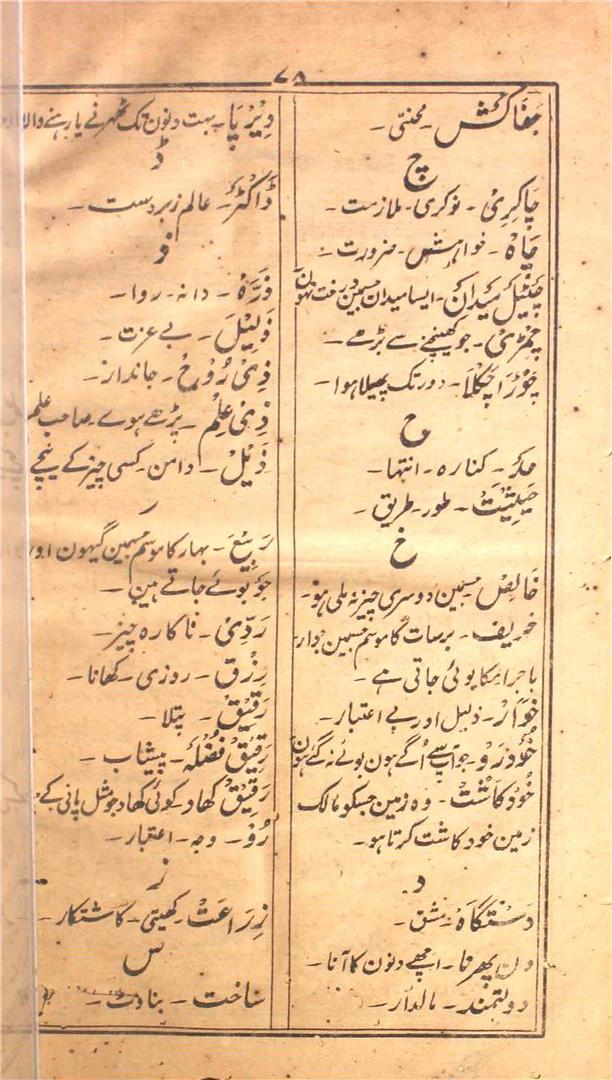 ۷۵
جفاکش - محنتی -
چ
چاکری - نوکری - ملازمت -
چاہ - خواہش - ضرورت -
چٹیل میدان - ایسا میدان جسمین درخت نہون
چمڑی - جو کھینچنے سے بڑھے -
چوڑا چکلا - دور تک پھیلا ہوا -
ح
حد - کنارہ - انتہا -
حیثیت - طور - طریق -
خ
خالِص جسمین دوسری چیز نہ ملی ہو -
خریف - برسات کا موسم جسمین جوار
باجرا مکا بوئی جاتی ہے -
خوار - ذلیل اور بے اعتبار -
خُودرَو - جو آپ سے اُگے ہون بوئے نہ گئے ہون
خُودکاشت - وہ زمین جسکو مالک
زمین خود کاشت کرتا ہو -
د
دَستگاہ - مشق -
دن پھرنا - اچھے دنون کا آنا -
دولتمند - مالدار -
دیرپا - بہت دنون تک ٹھہرنے یا رہنے والا
ڈ
ڈاکٹر - عالم زبردست -
ذ
ذرّہ - دانہ - روا -
ذلیل - بے عزت -
ذی رُوح - جاندار -
ذی عِلم - پڑھے ہوے - صاحب علم
ذَیل - دامن - کسی چیز کے نیچے
ر
ربیع - بہار کا موسم جسمین گیہون اور
جَو بوئے جاتے ہین -
ردّی - ناکارہ چیز -
رِزق - روزی - کھانا -
رَقیق - پتلا -
رَقیق فُضلہ - پیشاب -
رَقیق کھاد - کوئی کھاد جو مثل پانی کے
رُو - وجہ - اعتبار -
ز
زِراعت - کھیتی - کاشتکار -
س
ساخت - بناوٹ -